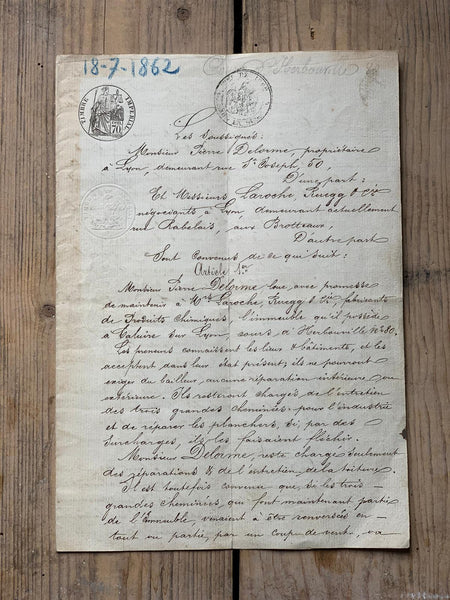 18-7-1862
Cours d'Herbouville
TIMBRE IMPÉRIAL
70
Les Soussignés:
Monsieur Pierre Delorme, propriétaire
à Lyon, demeurant rue St Joseph, 50,
D'une part:
Et Messieurs Laroche, Ruegg & Cie
négociants à Lyon, demeurant actuellement
rue Rabelais, aux Brotteaux,
D'autre part
Sont Convenus de ce qui suit:
Article 1er
Monsieur Pierre Delorme loue, avec promesse
de maintenir à Mrs Laroche, Ruegg & Cie fabricants
de Produits Chimiques, l'immeuble qu'il possède
à Caluire sur Lyon cours d'Herbouville No 80.
Les preneurs connaissent les lieux & bâtiments, et les
acceptent dans leur état présent; ils ne pourront
exiger du bailleur aucune réparation intérieure ou
extérieure. Ils resteront chargés de l'entretien
des trois grandes cheminées pour l'industrie
et de réparer les planchers, si, par des
surcharges, ils les faisaient fléchir.
Monsieur Delorme, reste chargé seulement
des réparations & de l'entretien de la toiture.
Il est toutefois convenu que, si les trois
grandes cheminées, qui font maintenant partie
de l'Immeuble, venaient à être renversées en
tout ou partie, par un coup de vent, ou